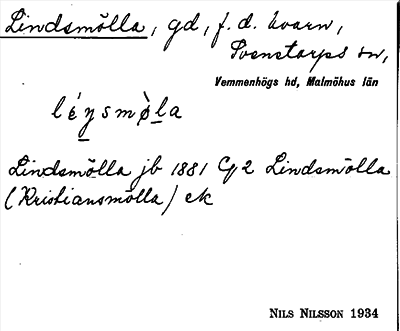 Lindsmölla, gd, f. d. kvarn,
Svenstorps sn,
Vemmenhögs hd, Malmöhus län
léysmø̀la
Lindsmölla jb 1881 Cy2 Lindsmölla
(Kristiansmölla) ek
NILS NILSSON 1934